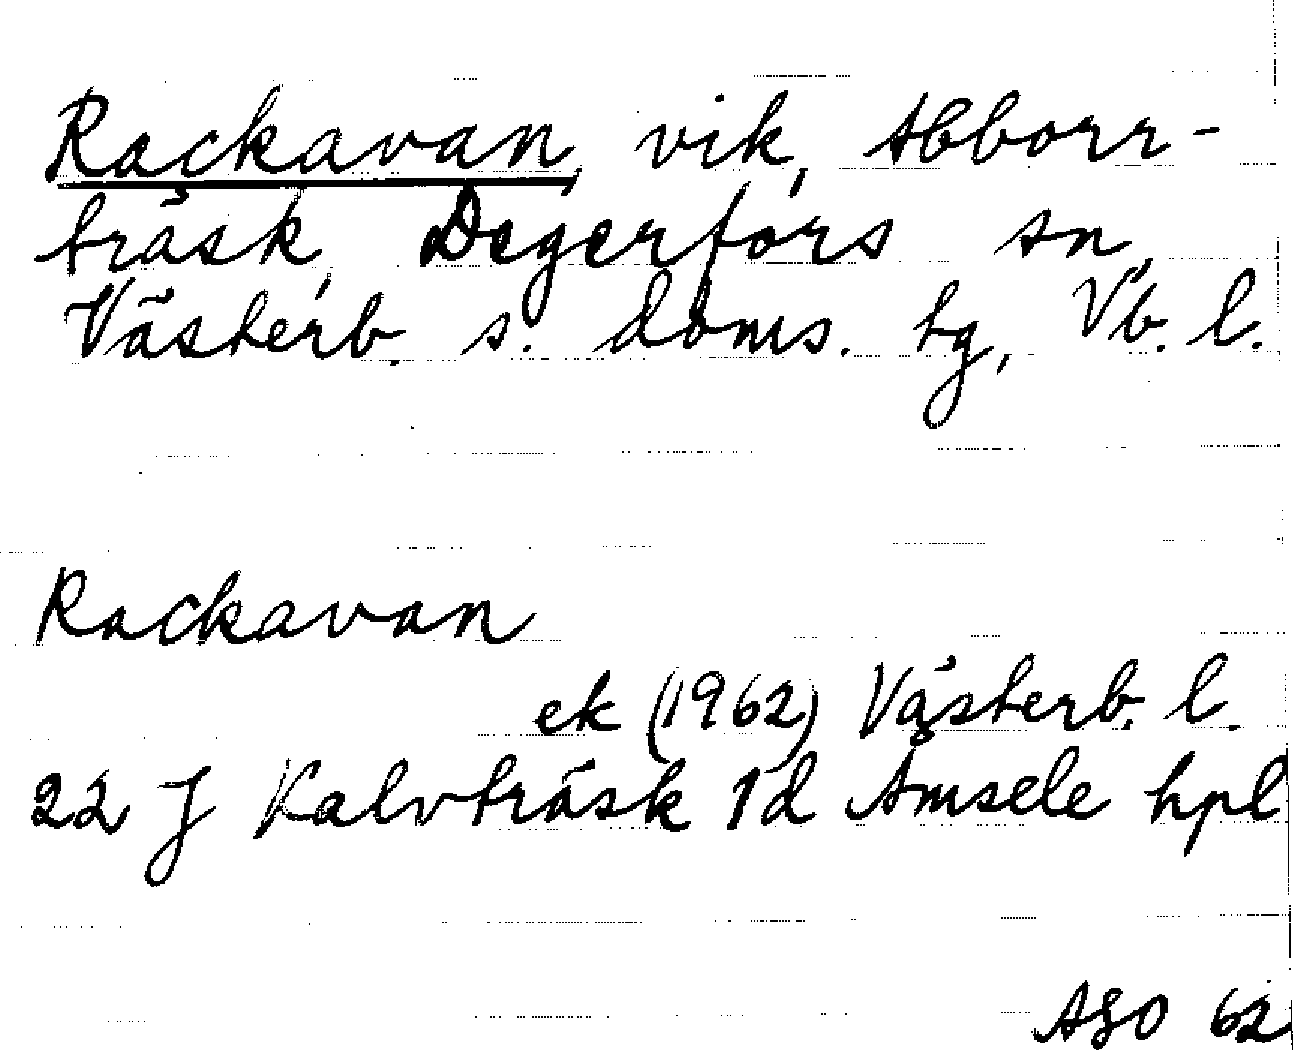 Rackavan, vik, Abborr-
träsk, Degerfors sn,
Västerb. s. doms. tg, Vb. l.
Rackavan
ek (1962) Västerb. l.
22 J Kalvträsk 1d Åmsele hpl
AGO 62